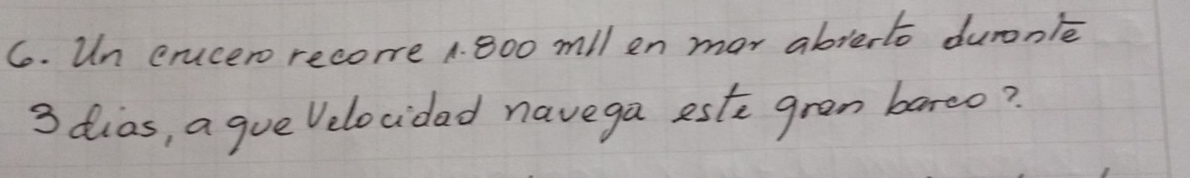 6. Un crucero recorre 1.800 mill en mar abierto durante
3 dias, a que Velocidad navega este gran barco?